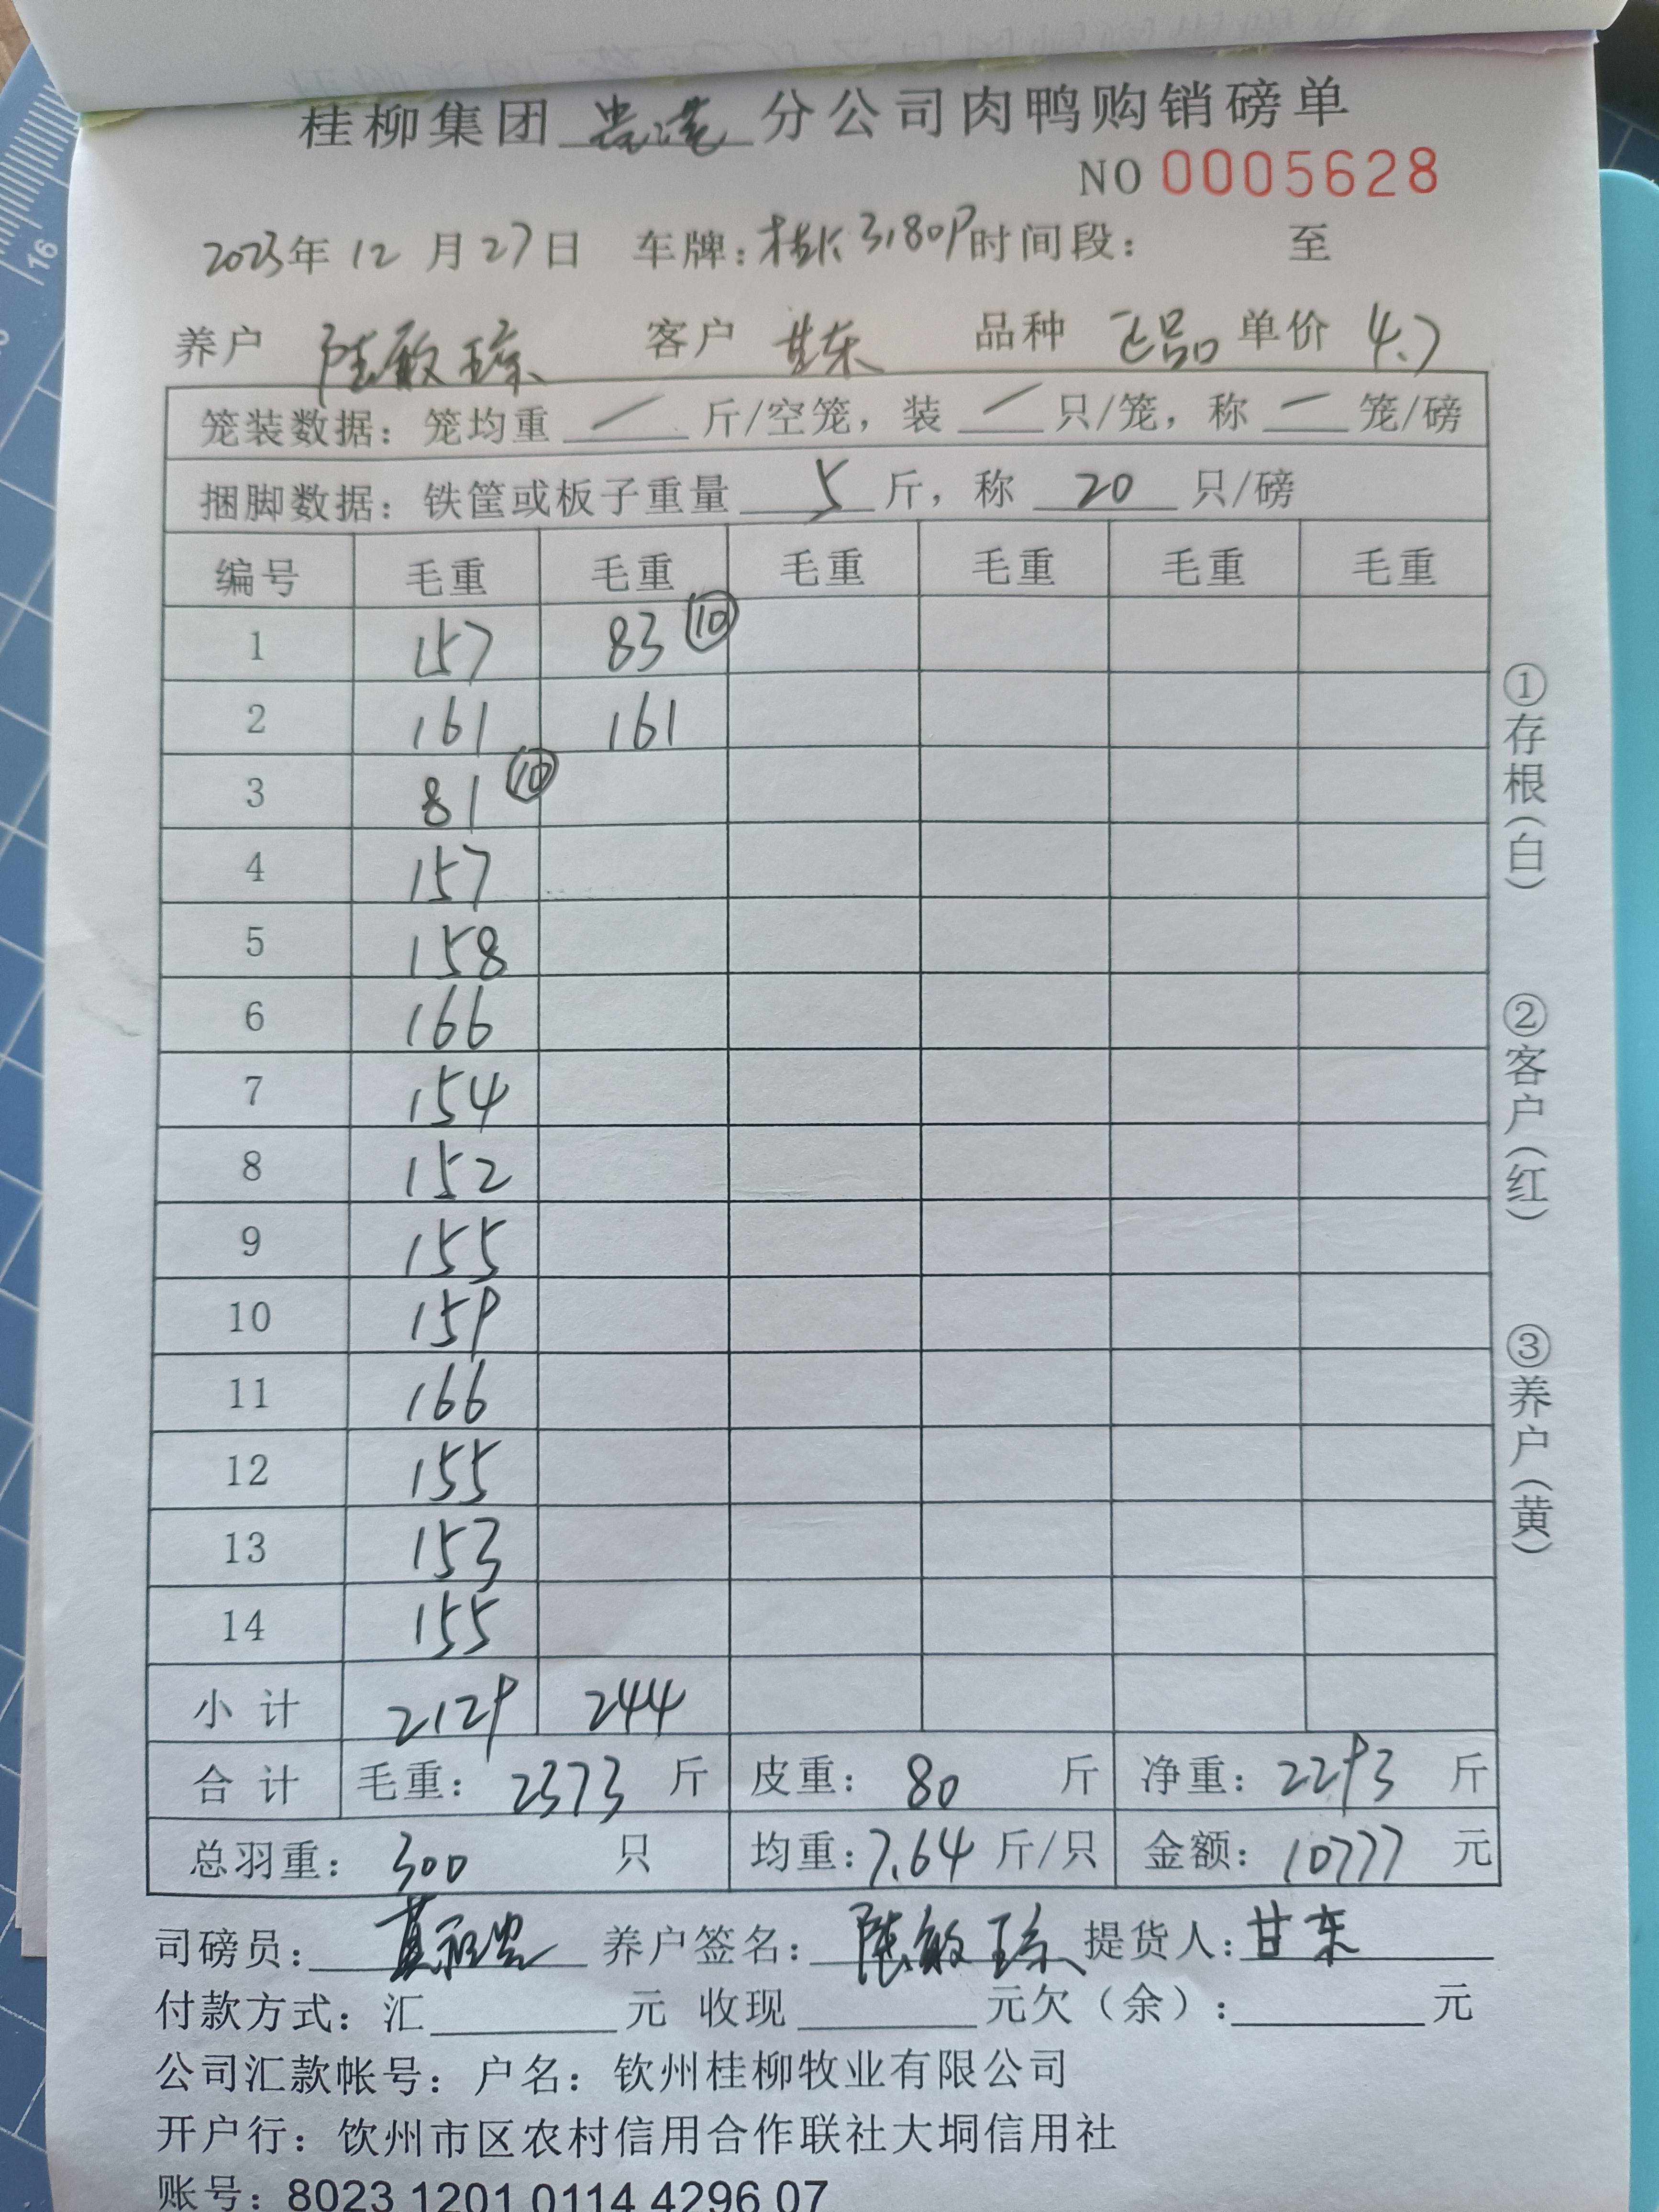 桂柳集团 贵港 分公司肉鸭购销磅单
NO 0005628
2023年 12 月 27 日 车牌: 时间段: 至
养户 陆敏琼 客户 甘东 品种 正品 单价 4.7
笼装数据: 笼均重 / 斤/空笼, 装 / 只/笼, 称 / 笼/磅
捆脚数据: 铁筐或板子重量 5 斤, 称 20 只/磅
编号 毛重 毛重 毛重 毛重 毛重 毛重
1 157 83 ⑩
2 161 161
3 81 ⑩
4 157
5 158
6 166
7 154
8 152
9 155
10 159
11 166
12 155
13 153
14 155
小计 2129 244
合计 毛重: 2373 斤 皮重: 80 斤 净重: 2293 斤
总羽重: 300 只 均重: 7.64 斤/只 金额: 10777 元
司磅员: 养户签名: 陆敏琼 提货人: 甘东
付款方式: 汇 元 收现 元欠(余): 元
公司汇款帐号: 户名: 钦州桂柳牧业有限公司
开户行: 饮州市区农村信用合作联社大垌信用社
账号: 8023 1201 0114 4296 07
①存根(白)
②客户(红)
③养户(黄)
16